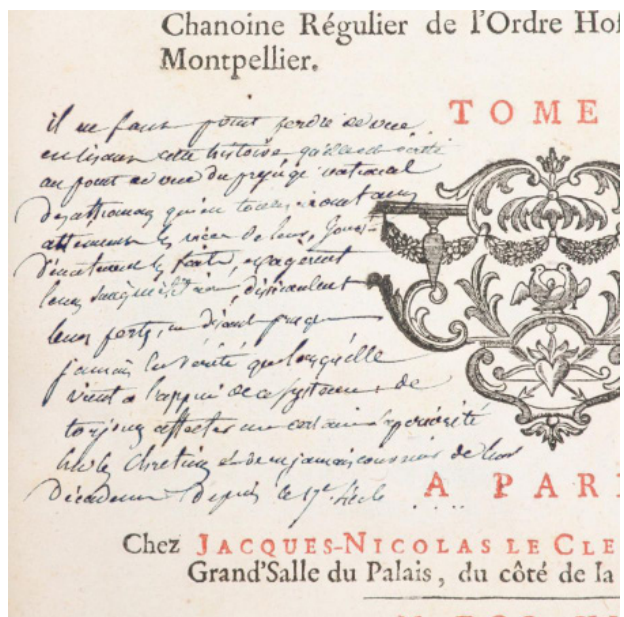 Chanoine Régulier de l'Ordre Hos
Montpellier.
TOME
il ne faut point perdre de vue
en lisant cette histoire qu'elle est écrite
au point de vue du préjugé national
des ottomans qui en toutes
atténuent les vices de leur Gouver-
leurs dissimulent
leurs pertes, ne disant presque
jamais la vérité que lorsqu'elle
vient à l'appui de ce systeme de
toujours affecter une certaine supériorité
sur les Chretiens et de ne jamais convenir de leur
Décadence depuis le 17e siècle
A PARI
Chez JACQUES-NICOLAS LE CLE
Grand'Salle du Palais, du côté de la